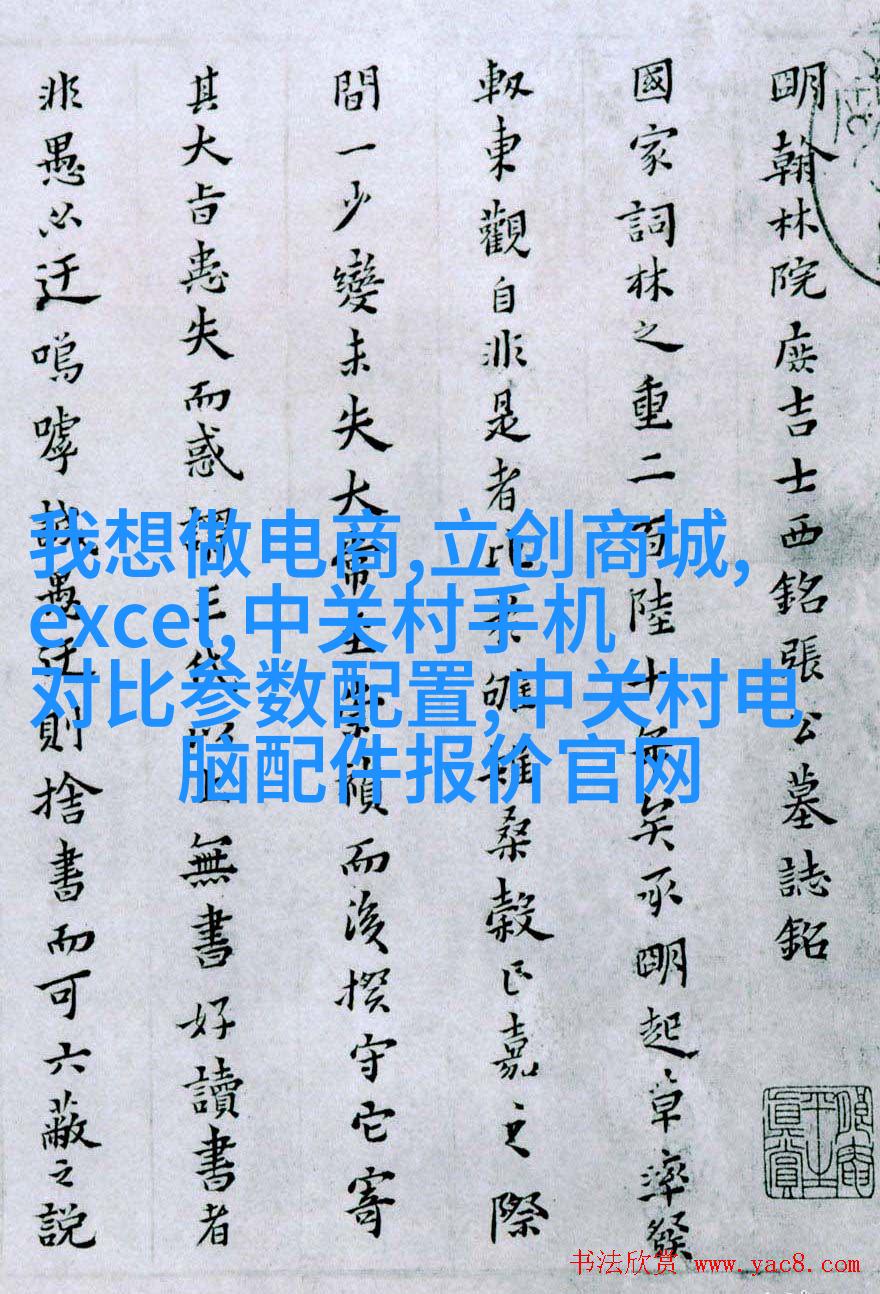 明翰林院庶吉士西銘張公墓誌銘
國家詞林之重二百陸十年矣承明起草滓發
軔東觀自非是者比來雖桑穀正嘉之際
間一少變未失大常至積而後揆守它寄
其大旨悉失而惑謂三代以上無書好讀書者
非愚必迂嗚嘑誠愚迂則捨書而可六蔽之説
我想做电商,立创商城,
excel,中关村手机
对比参数配置,中关村电
脑配件报价官网
书法欣赏 www.yac8.com